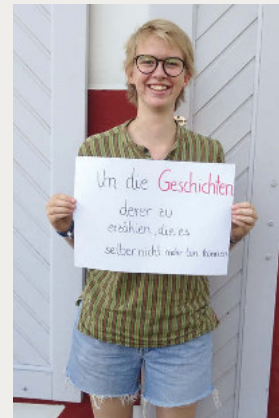 Um die Geschichten
derer zu
erzählen, die es
selber nicht mehr tun können